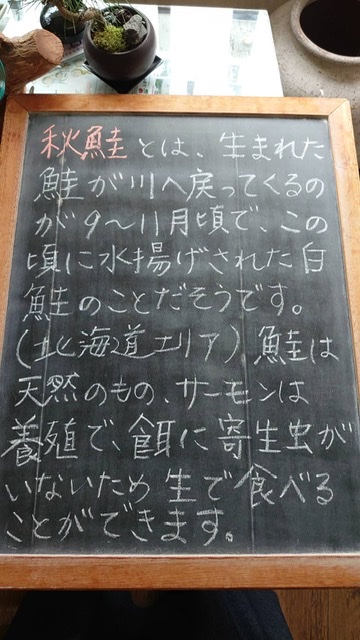 秋鮭とは、生まれた
鮭が川へ戻ってくるの
が9〜11月頃で、この
頃に水揚げされた白
鮭のことだそうです。
(北海道エリア)鮭は
天然のもの、サーモンは
養殖で、餌に寄生虫が
いないため生で食べる
ことができます。